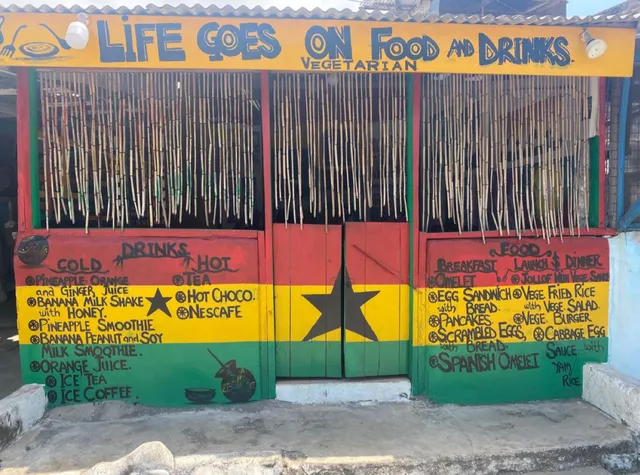 LIFE GOES ON FOOD AND DRINKS.
VEGETARIAN
DRINKS
COLD
PINEAPPLE ORANGE
and GINGER JUICE
BANANA MILK SHAKE
with HONEY.
PINEAPPLE SMOOTHIE
BANANA PEANUT and SOY
MILK SMOOTHIE.
ORANGE JUICE.
ICE TEA
ICE COFFEE.
HOT
TEA
HOT CHOCO.
NESCAFE
FOOD
BREAKFAST
OMELET
EGG SANDWICH
with BREAD
PANCAKES
SCRAMBLED EGGS,
with BREAD
SPANISH OMELET
LAUNCH & DINNER
JOLLOF With VEGE
VEGE FRIED RICE
with VEGE SALAD
VEGE BURGER
CABBAGE EGG
SAUCE with
YAM
RICE